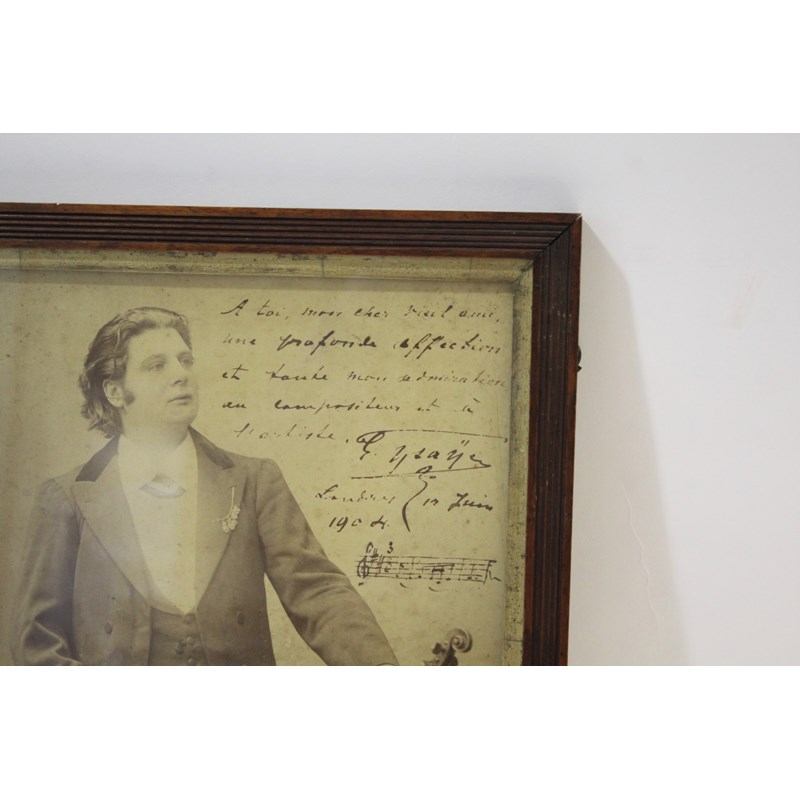 A toi, mon cher vieil ami,
une profonde affection
et toute mon admiration
au compositeur et à
l'artiste.
E. Ysaÿe
Londres 12 Juin
1904.
3